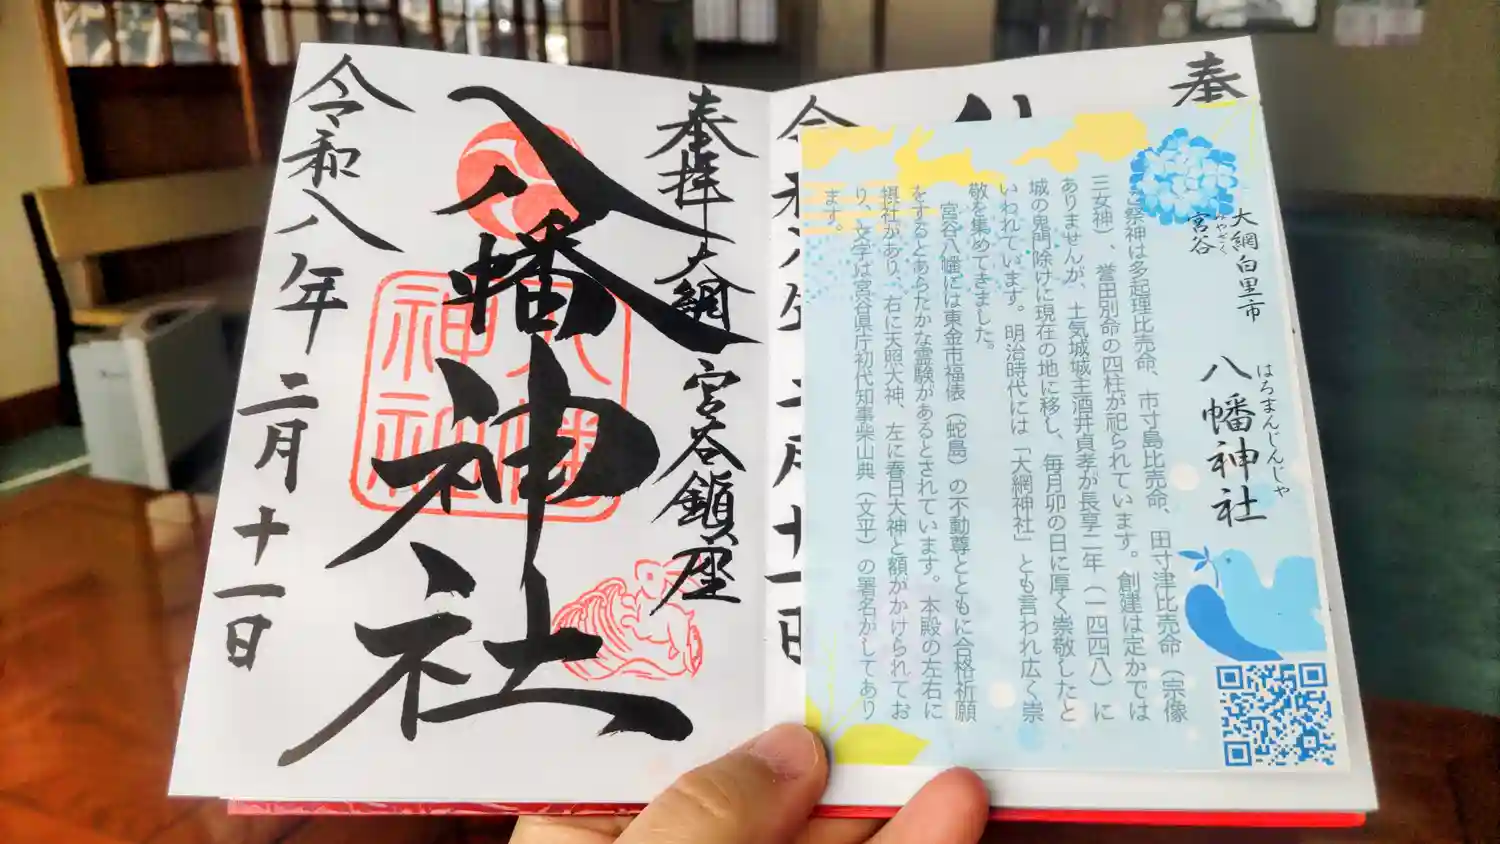 奉拝 大網 宮谷鎮座
八幡神社
令和八年二月十一日
八幡神社
奉
大網白里市
宮谷
みやざく
八幡神社
はちまんじんじゃ
祭神は多起理比売命、市寸島比売命、田寸津比売命(宗像
三女神)、誉田別命の四柱が祀られています。創建は定かでは
ありませんが、土気城城主酒井貞孝が長享二年(一四四八)に
城の鬼門除けに現在の地に移し、毎月卯の日に厚く崇敬したと
いわれています。明治時代には「大網神社」とも言われ広く崇
敬を集めてきました。
宮谷八幡には東金市福俵(蛇島)の不動尊とともに合格祈願
をするとあらたかな霊験があるとされています。本殿の左右に
摂社があり、右に天照大神、左に春日大神と額がかけられてお
り、文字は宮谷県庁初代知事柴山典(文平)の署名がしてあり
ます。